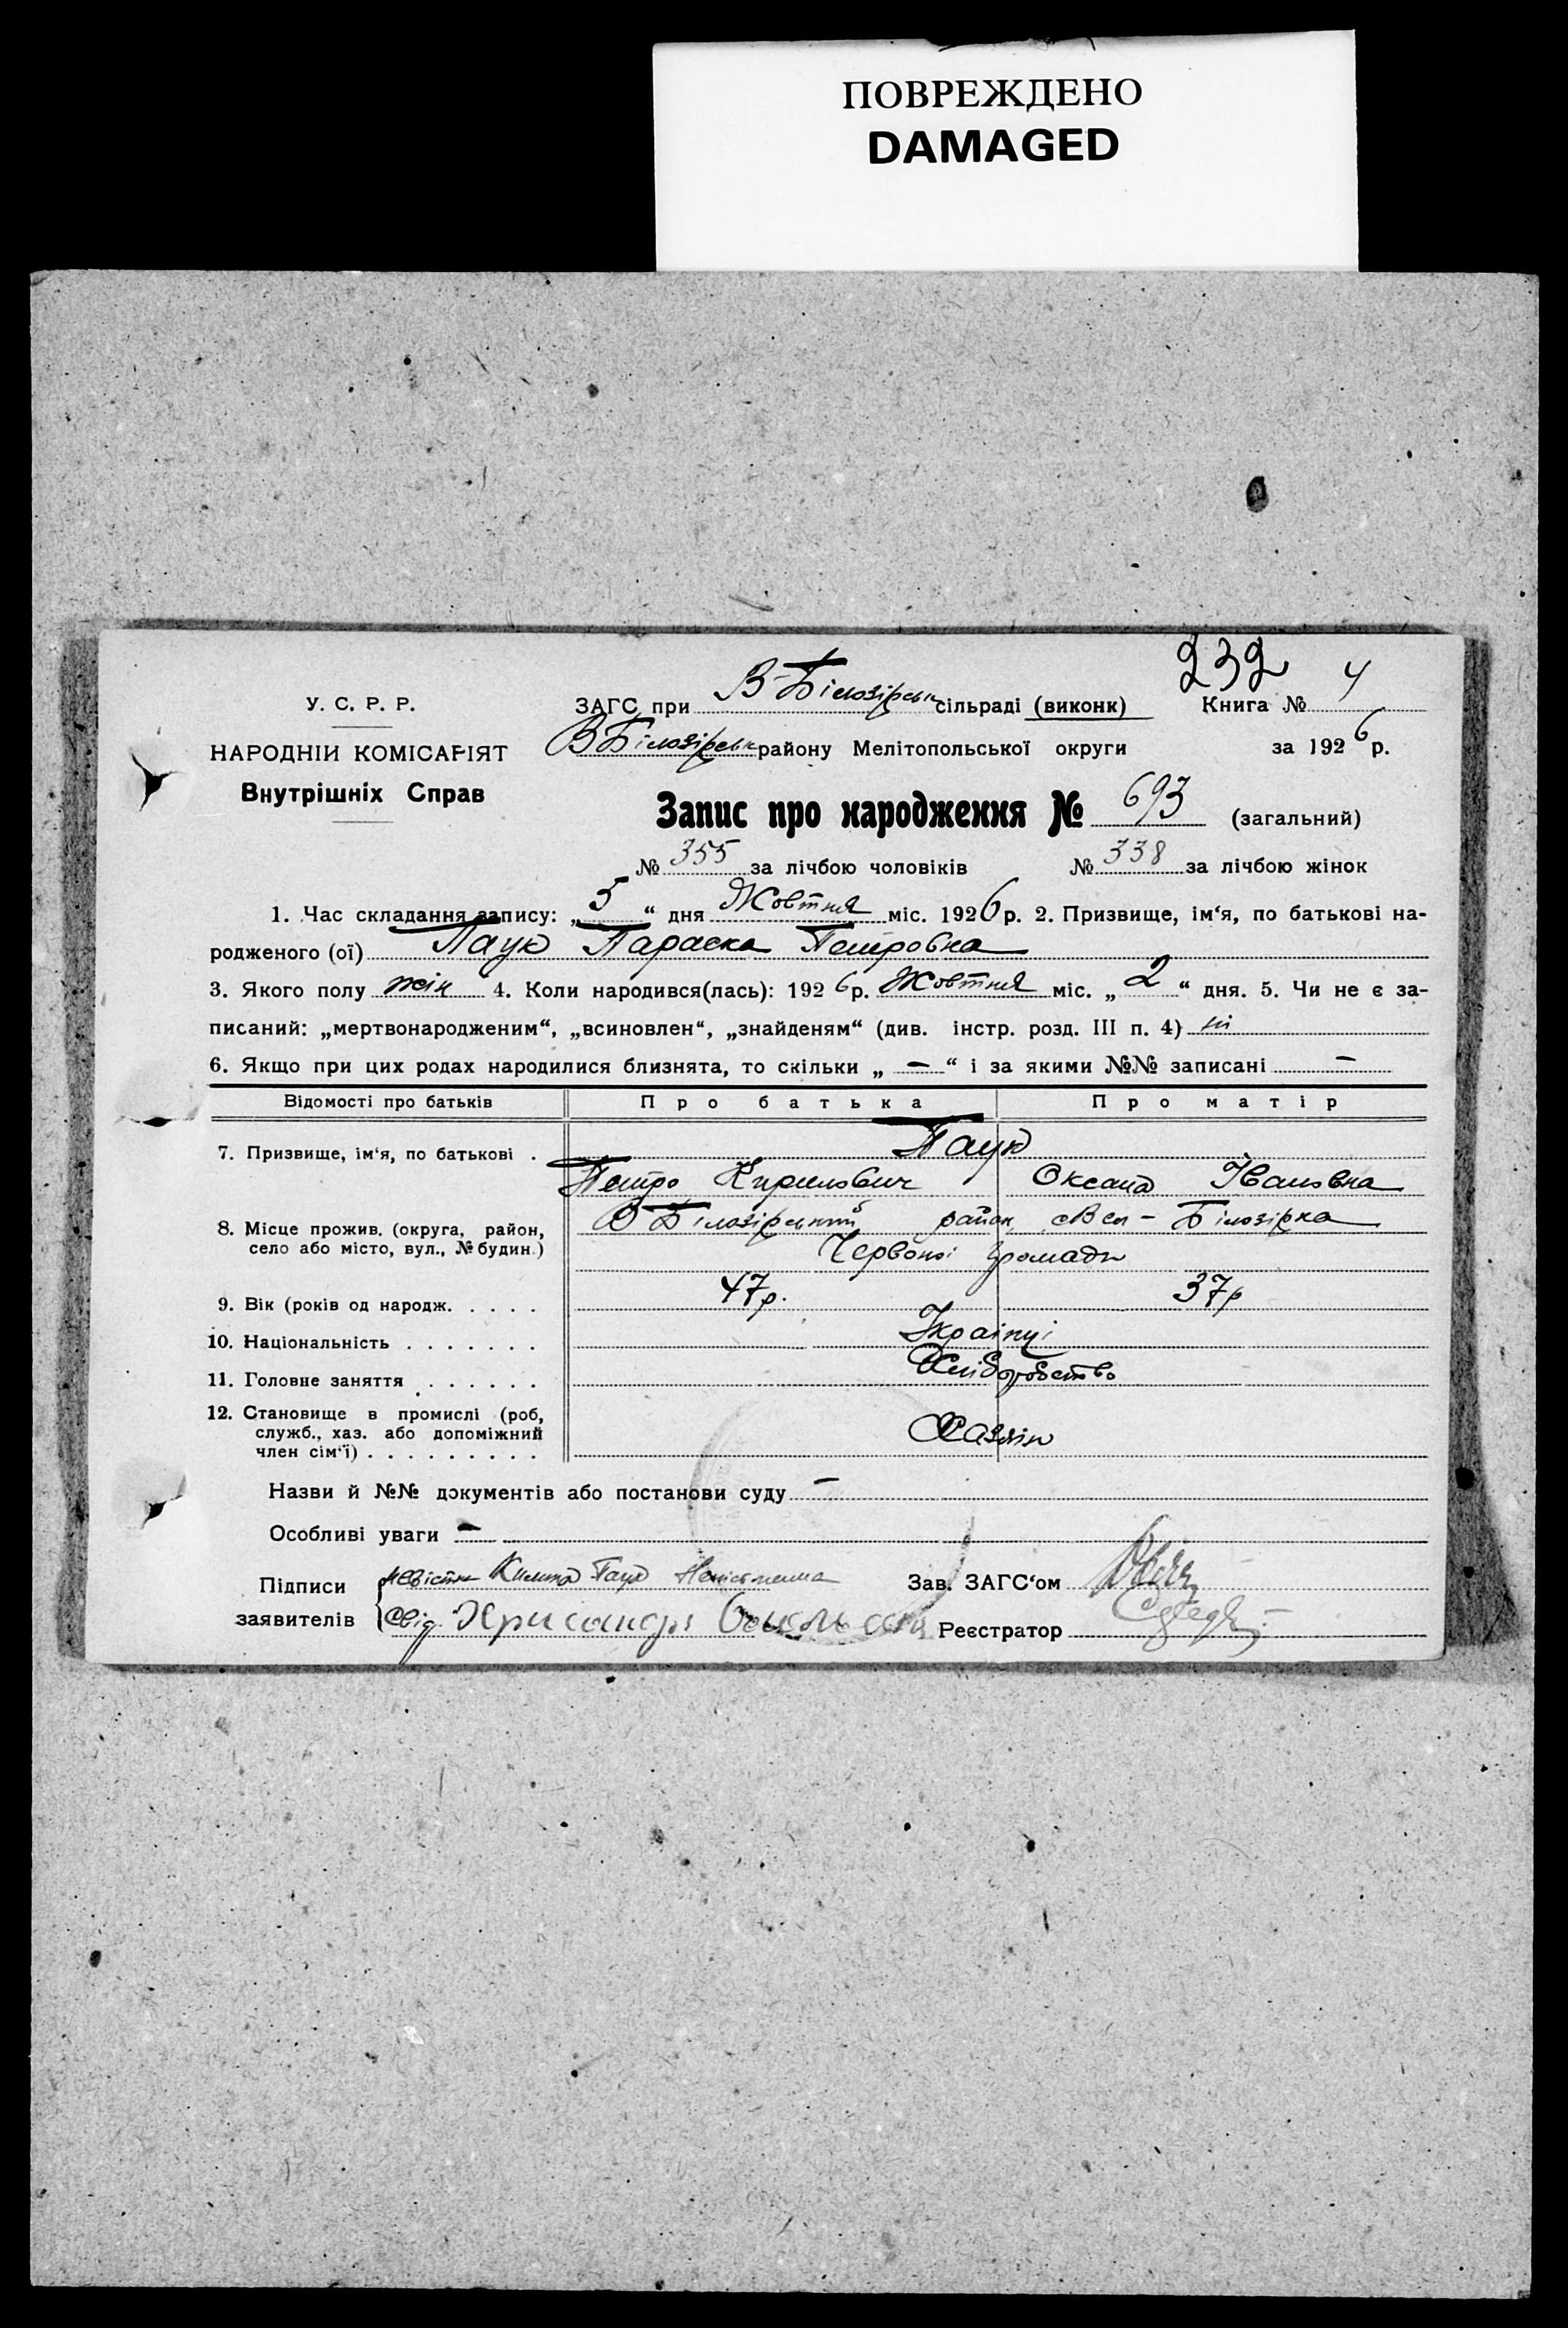 ПОВРЕЖДЕНО
DAMAGED
232
У. С. Р. Р.
НАРОДНІЙ КОМІСАРІЯТ
Внутрішніх Справ
ЗАГС при В-Білозірськ сільраді (виконк) Книга № 4
ВБілозірськ району Мелітопольської округи за 1926 р.
Запис про народження № 693 (загальний)
№ 355 за лічбою чоловіків № 338 за лічбою жінок
1. Час складання запису: „5“ дня Жовтня міс. 1926 р. 2. Призвище, ім‘я, по батькові на-
родженого (ої) Паук Параска Петровна
3. Якого полу жін 4. Коли народився(лась): 1926 р. Жовтня міс. „2“ дня. 5. Чи не є за-
писаний: „мертвонародженим“, „всиновлен“, „знайденям“ (див. інстр. розд. III п. 4) ні
6. Якщо при цих родах народилися близнята, то скільки „ — “ і за якими №№ записані —
Відомості про батьків Про батька Про матір
7. Призвище, ім‘я, по батькові . Паук
Петро Кирилович Оксана Івановна
8. Місце прожив. (округа, район,
село або місто, вул., № будин.)
В Білозірський район с Вел-Білозірка
Червоної громади
9. Вік (років од народж. . . . . 47р. 37р
10. Національність . . . . . . . Українці
11. Головне заняття . . . . . . Хліборобство
12. Становище в промислі (роб,
служб., хаз. або допоміжний
член сім‘ї) . . . . . . . . . Хазяін
Назви й №№ документів або постанови суду —
Особливі уваги —
Підписи
заявителів
Паук
свід.
Зав. ЗАГС‘ом
Реєстратор